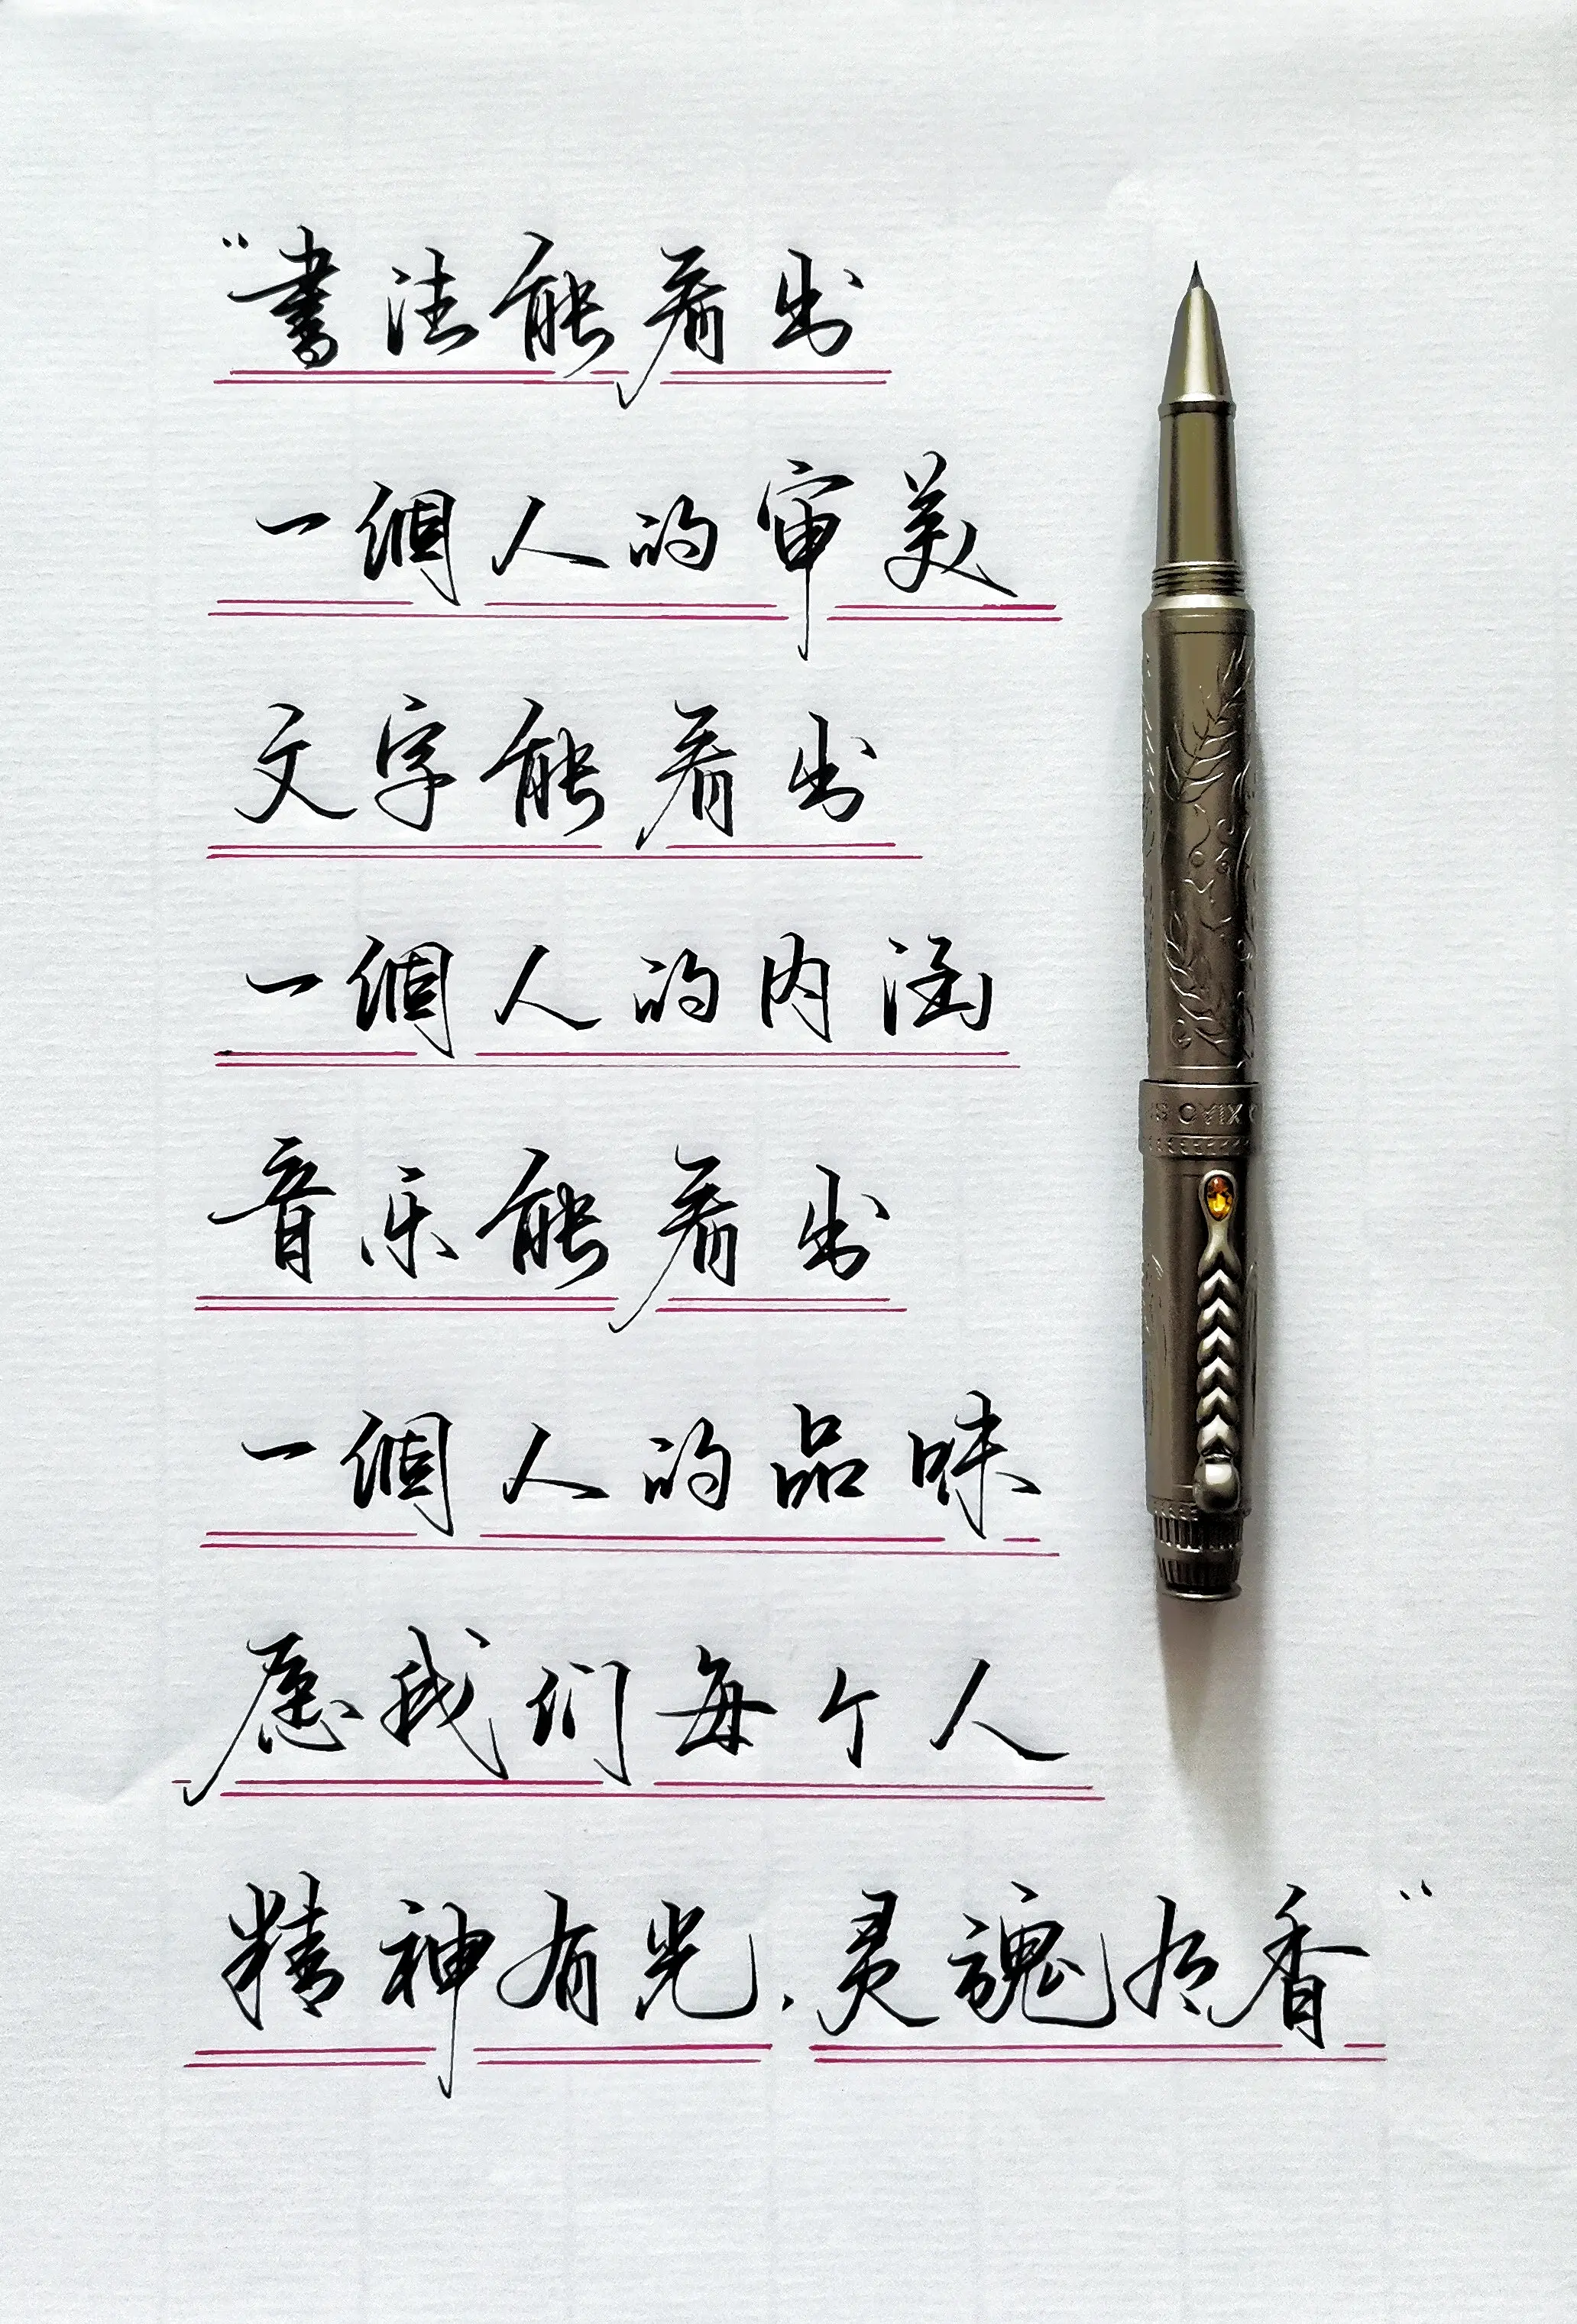 “書法能看出
一個人的审美
文字能看出
一個人的内涵
音乐能看出
一個人的品味
愿我们每个人
精神有光,灵魂有香”